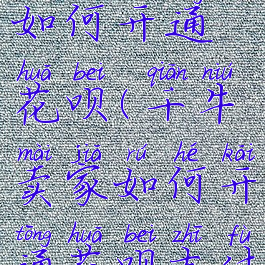 如何开通
huā bei qiān niú
花呗(千牛
mài jiā rú hé kāi
卖家如何开
tōng huā bei zhī fù
通花呗支付